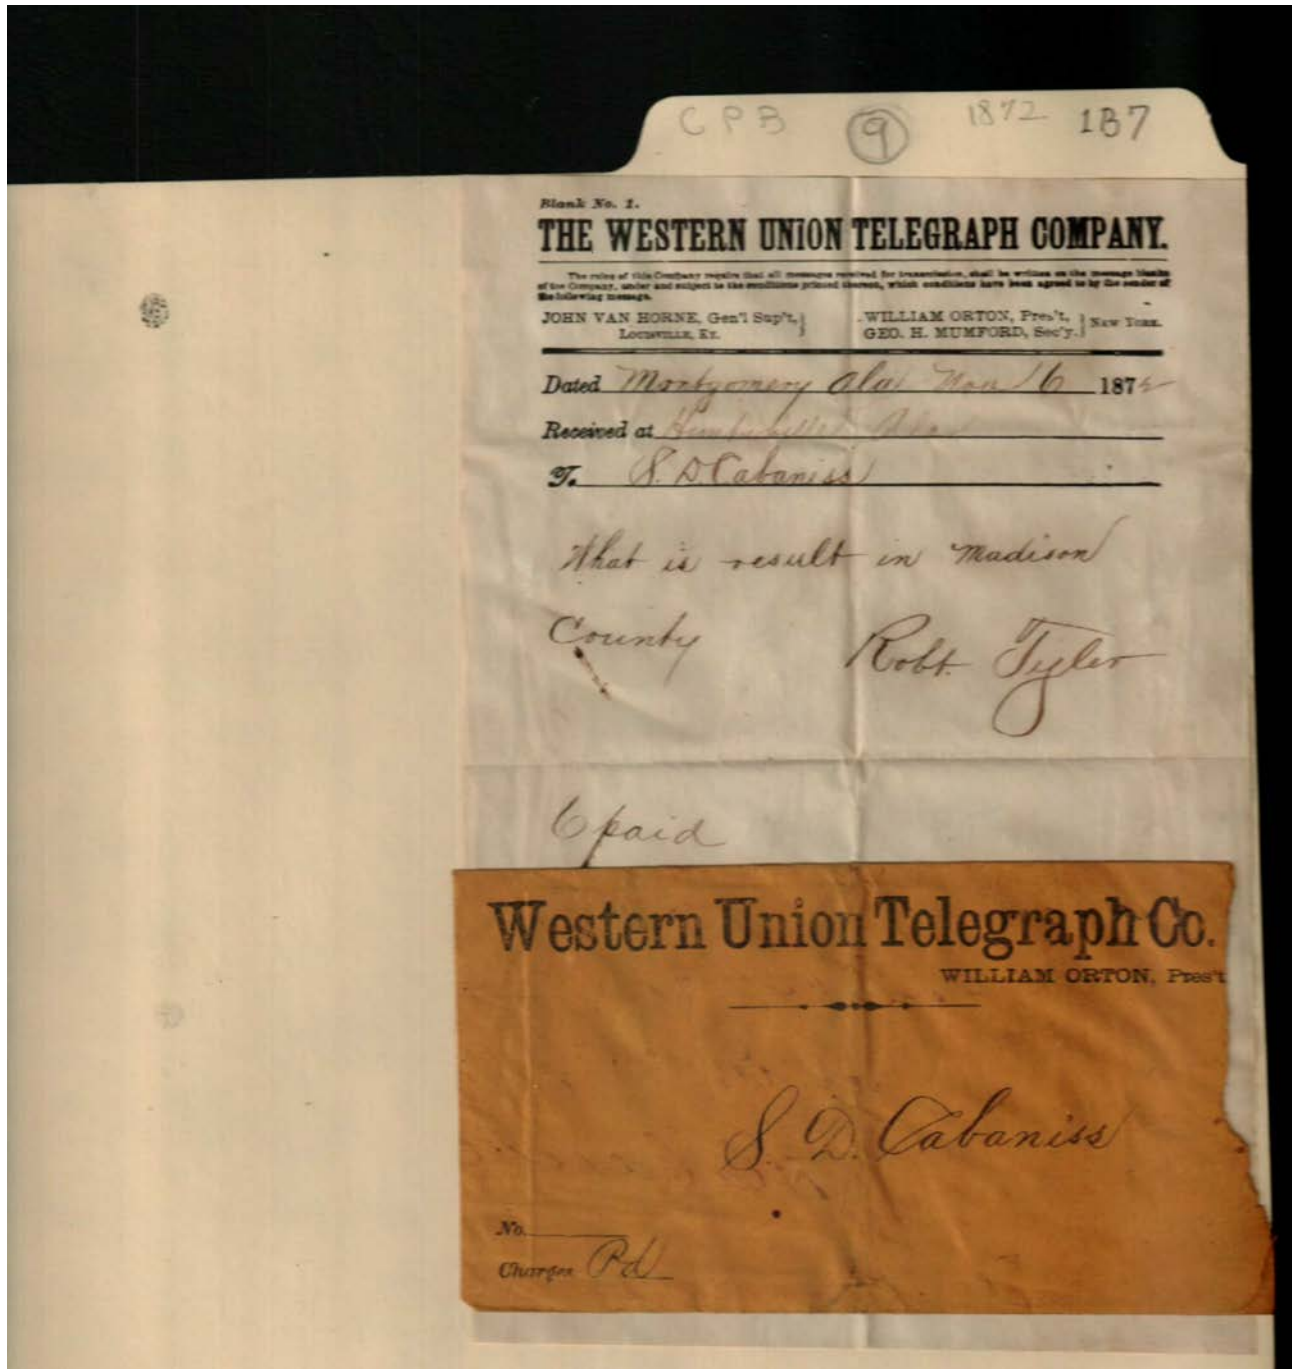 CPB 9 1872 187
Blank No. 1.
THE WESTERN UNION TELEGRAPH COMPANY.
The rules of this Company require that all messages received for transmission, shall be written on the message blanks
of the Company, under and subject to the conditions printed thereon, which conditions have been agreed to by the sender of
the following message.
JOHN VAN HORNE, Gen'l Sup't, WILLIAM ORTON, Pres't, NEW YORK.
LOUISVILLE, KY. GEO. H. MUMFORD, Sec'y.
Dated Montgomery Ala 6 187
Received at Huntsville Ala
To S. D. Cabaniss
What is result in Madison
County Robt. Tyler
6 paid
Western Union Telegraph Co.
WILLIAM ORTON, Pres't
S. D. Cabaniss
No.
Charges Pd